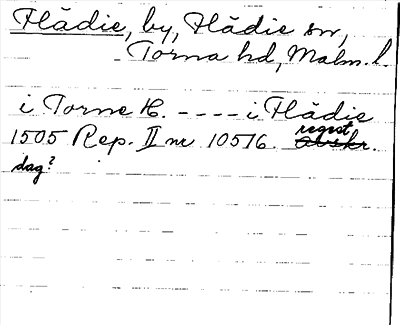 Flädie, by, Flädie sn,
Torna hd, Malm. l.
i Torne H. - - - - i Flädie
1505 Rep. II nr 10576. regest
avskr.
dag?